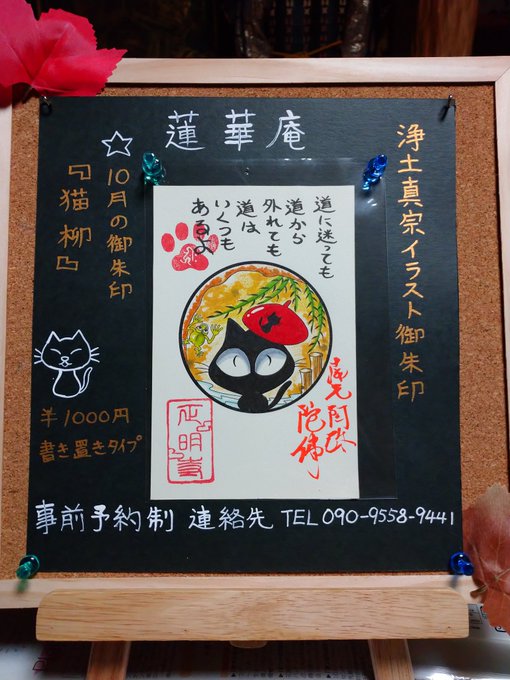 蓮華庵
浄土真宗イラスト御朱印
☆10月の御朱印
『猫柳』
道に迷っても
道から
外れても
道は
いくつも
あるよ
南无阿弥
陀佛
正明寺
¥1000円
書き置きタイプ
事前予約制 連絡先 TEL 090-9558-9441